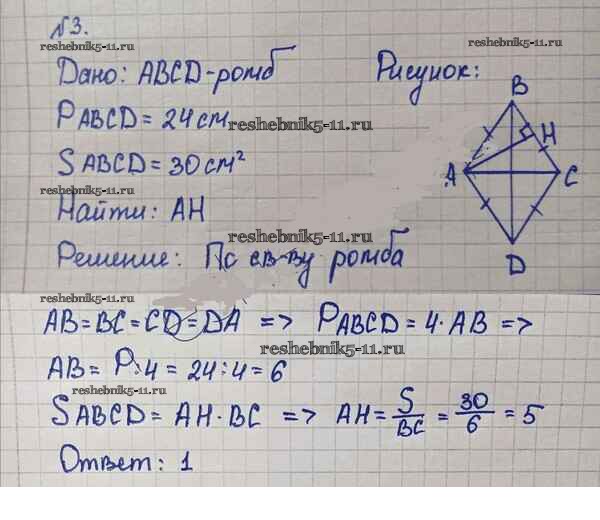 №3.
reshebnik5-11.ru
Дано: ABCD-ромб
Рисунок:
PABCD = 24 см
reshebnik5-11.ru
reshebnik5-11.ru
SABCD = 30 см²
reshebnik5-11.ru
Найти: AH
reshebnik5-11.ru
Решение: По св-ву ромба
B
H
A
C
D
reshebnik5-11.ru
AB = BC = CD = DA => PABCD = 4·AB =>
reshebnik5-11.ru
AB = P:4 = 24:4 = 6
reshebnik5-11.ru
SABCD = AH·BC => AH = S/BC = 30/6 = 5
Ответ: 1